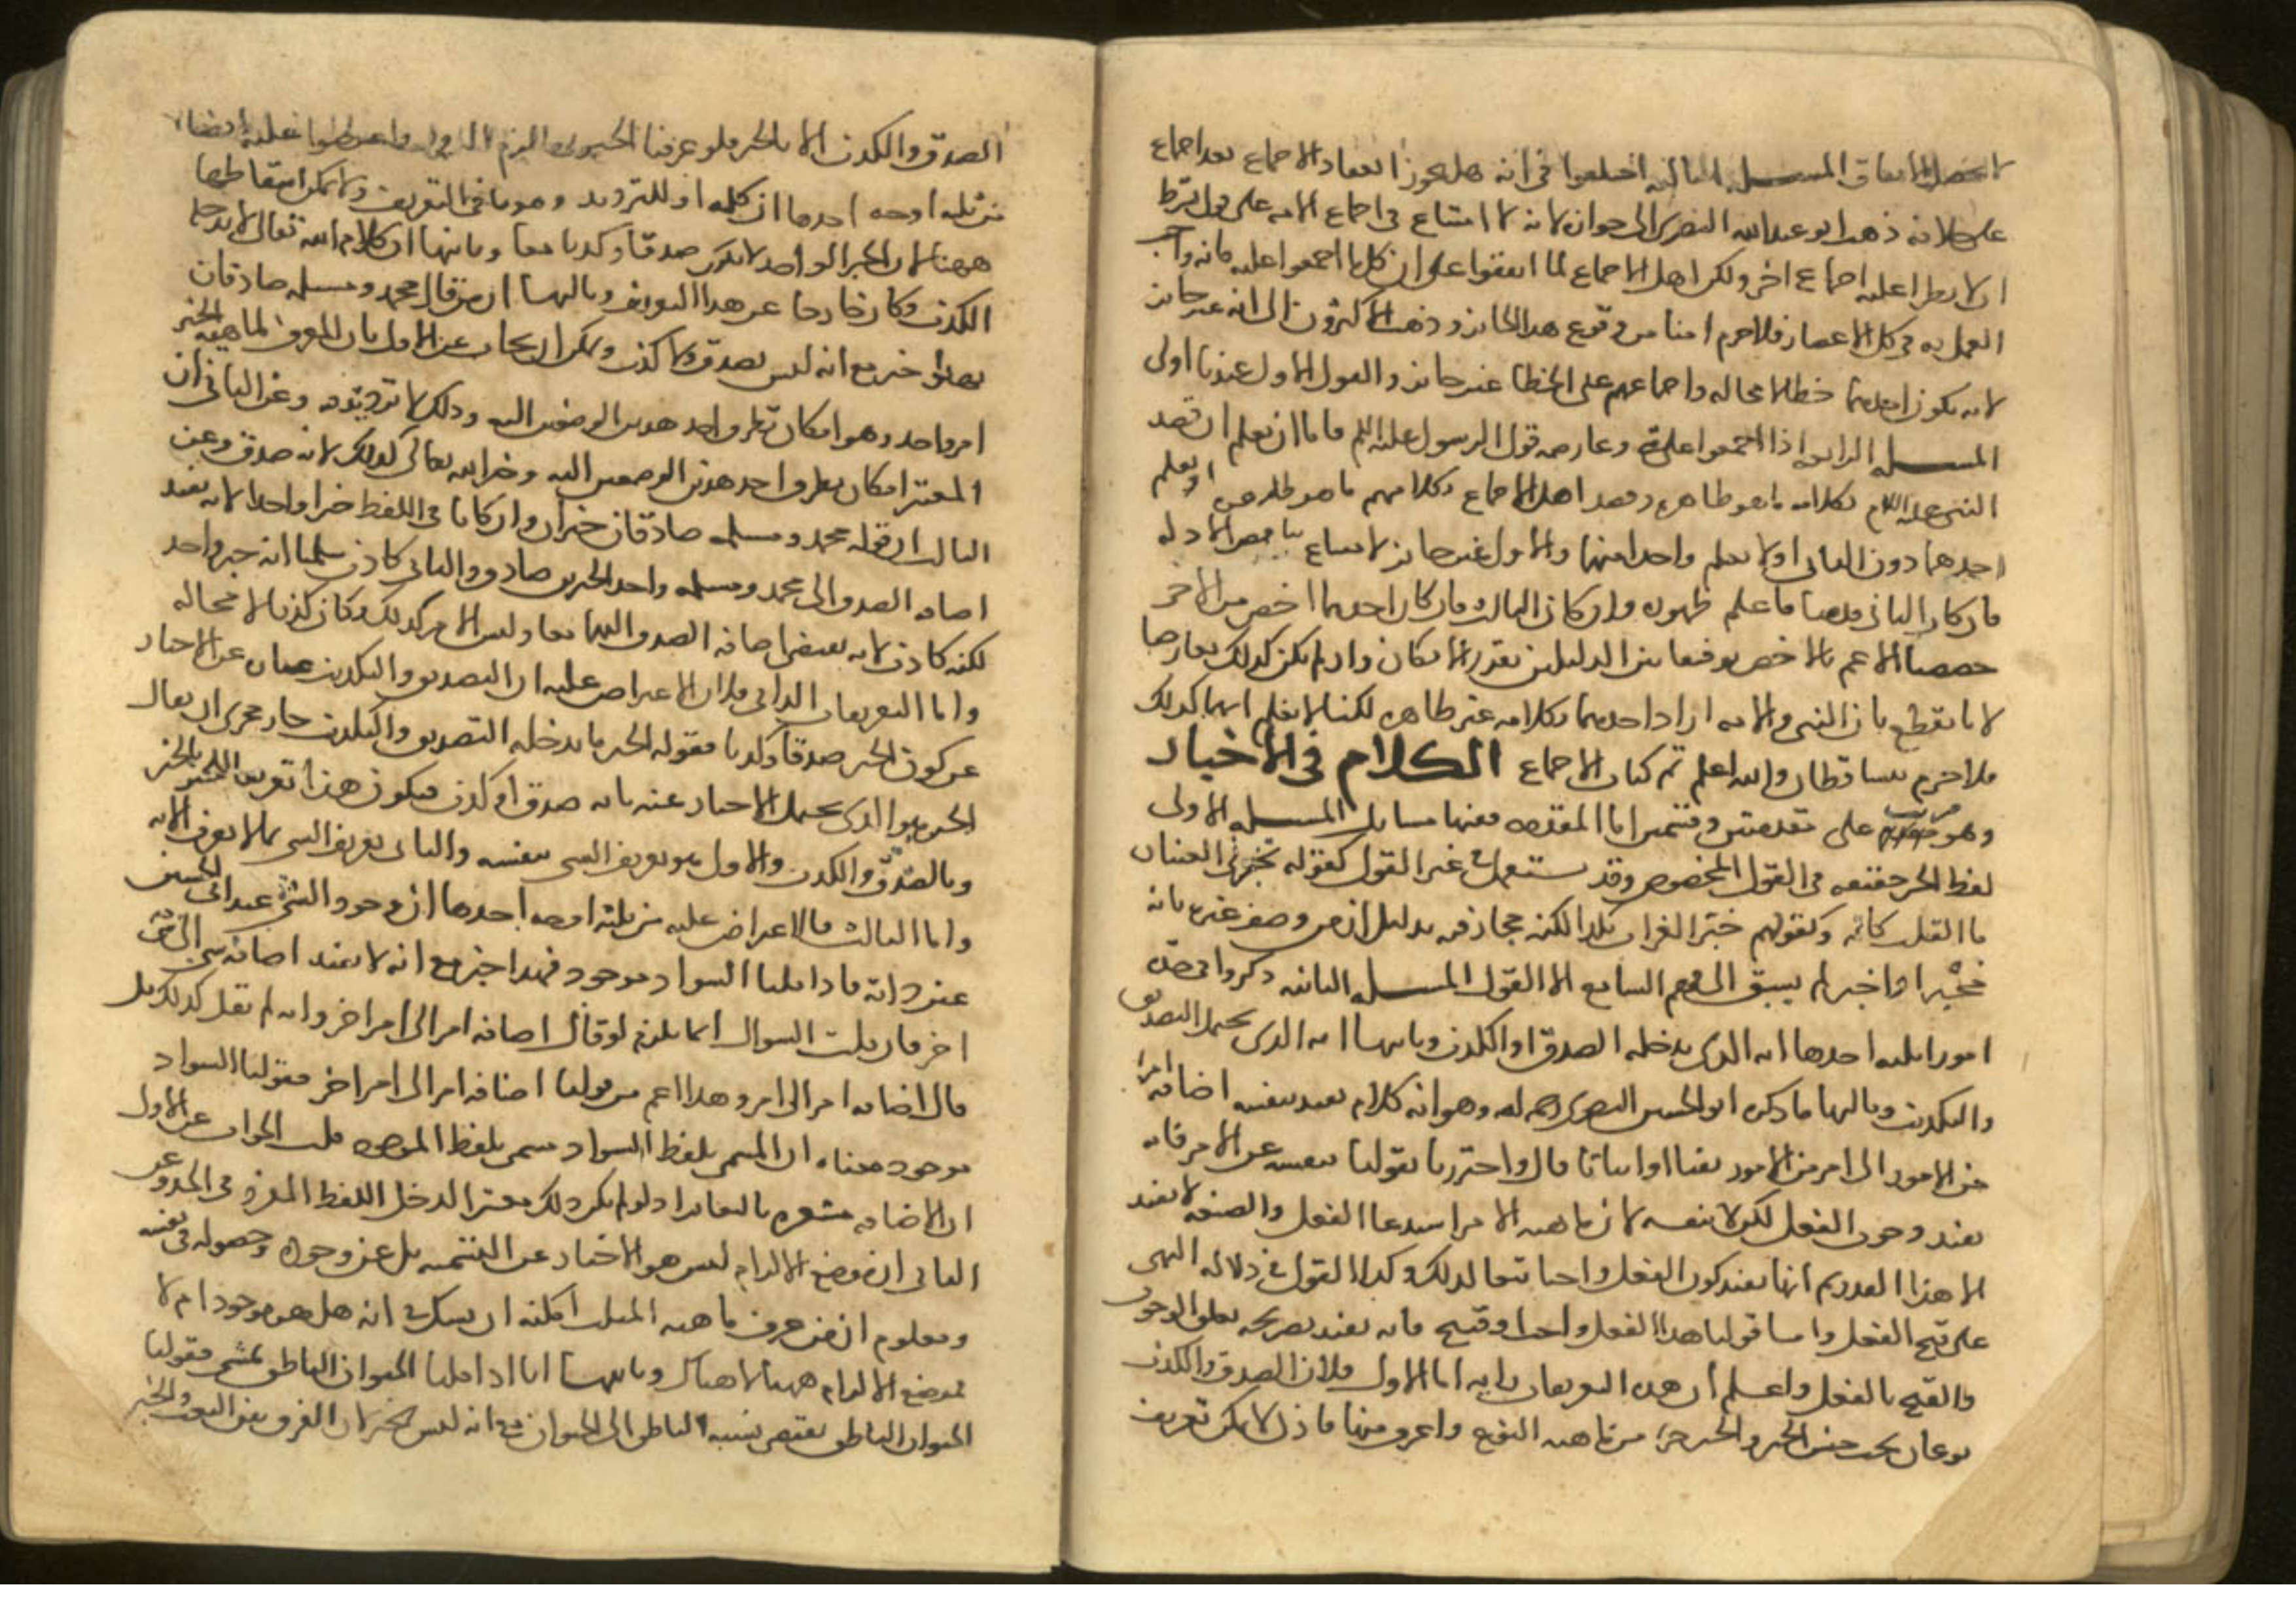 لا يحصل الاتفاق المسىلة الثالثة اختلفوا في انه هل يجوز انعقاد الاجماع بعد اجماع
على خلافه ذهب ابو عبدالله البصرى الى جوازه لانه لا امتناع في اجماع الامه على قول بشرط
ان لا يطرا عليه اجماع اخر ولكن اهل الاجماع لما اتفقوا على ان كل ما اجمعوا عليه فانه واجب
العمل به في كل الاعصار فلا جرم امنا من وقوع هذا الجائز وذهب الاكثرون الى انه غير جائز
لانه يكون احدهما خطا لا محاله واجماعهم على الخطا غير جائز والقول الاول عندنا اولى
المسىله الرابعه اذا اجمعوا على شي وعارضه قول الرسول عليه السلم فاما ان نعلم ان قصد
النبى عليه السلام بكلامه ما هو ظاهره وقصد اهل الاجماع بكلامهم ما هو ظاهره او نعلم
احدهما دون الثانى اولا نعلم واحدا منهما والاول غير جائز لامتناع تناقض الادله
فان كان الثانى قدمنا ما علم ظهوره وان كان الثالث فان كان احدهما اخص من الاخر
خصصنا الاعم بالاخص توفيقا بين الدليلين بقدر الامكان وان لم يكن كذلك تعارضا
لانا نقطع بان النبى والامه اراد احدهما بكلامه غير ظاهره لكنا لا نعلم ايهما كذلك
فلا جرم يتساقطان والله اعلم تم كتاب الاجماع الكلام في الاخبار
وهو مرتب على مقدمتين وقسمين اما المقدمه ففيها مسايل المسىله الاولى
لفظ الخبر حقيقه في القول المخصوص وقد يستعمل في غير القول كقوله تخبرنى العينان
ما القلب كاتم وكقولهم خبر الغراب بكذا لكنه مجاز فيه بدليل ان من وصف غيره بانه
مخبرا واخبر لم يسبق الى فهم السامع الا القول المسىله الثانيه ذكروا في حده
امورا ثلثه احدها انه الذى يدخله الصدق او الكذب وثانيها انه الذى يحتمل التصديق
والتكذيب وثالثها ما ذكره ابو الحسين البصرى رحمه الله وهو انه كلام يفيد بنفسه اضافه امر
من الامور الى امر من الامور نفيا او اثباتا قال واحترزنا بقولنا بنفسه عن الامر فانه
يفيد وجوب الفعل لكن لا بنفسه لان ماهيه الامر استدعا الفعل والصيغه لا تفيد
الا هذا القدر ثم انها تفيد كون الفعل واجبا تبعا لذلك وكذا القول في دلاله النهى
على قبح الفعل واما قولنا هذا الفعل واجب او قبيح فانه يفيد بصريحه تعلق الوجوب
والقبح بالفعل واعلم ان هذه التعريفات رديه اما الاول فلان الصدق والكذب
نوعان تحت جنس الخبر والخبر جزء من ماهيه النوع واعرف منها فاذن لا يمكن تعريف
الصدق والكذب الا بالخبر فلو عرفنا الخبر بهما لزم الدور واعترضوا عليه ايضا
من ثلثه اوجه احدها ان كلمه او للترديد وهو ينافى التعريف ولا يمكن اسقاطها
ههنا لان الخبر الواحد لا يكون صدقا وكذبا معا وثانيها ان كلام الله تعالى لا يدخله
الكذب وكان خارجا عن هذا التعريف وثالثها ان من قال محمد ومسيلمه صادقان
فهذا خبر مع انه ليس بصدق ولا كذب ويمكن ان يجاب عن الاول بان المعرف لماهيه الخبر
امر واحد وهو امكان تطرق احد هذين الوصفين اليه وذلك لا ترديد فيه وعن الثانى ان
المعتبر امكان تطرق احد هذين الوصفين اليه وخبر الله تعالى كذلك لانه صدق وعن
الثالث ان قوله محمد ومسيلمه صادقان خبران وان كانا في اللفظ خبرا واحدا لانه يفيد
اضافه الصدق الى محمد ومسيلمه واحد الخبرين صادق والثانى كاذب سلمنا انه خبر واحد
لكنه كاذب لانه يقتضى اضافه الصدق اليهما معا وليس الامر كذلك فكان كذبا لا محاله
واما التعريف الثانى فلان الاعتراض عليه ان التصديق والتكذيب عباره عن الاخبار
عن كون الخبر صدقا وكذبا فقوله الخبر ما يدخله التصديق والتكذيب جار مجرى ان يقال
الخبر هو الذى يحتمل الاخبار عنه بانه صدق او كذب فيكون هذا تعريف الخبر بالخبر
وبالصدق والكذب والاول هو تعريف الشى بنفسه والثانى تعريف الشى بما لا يعرف الا به
واما الثالث فالاعتراض عليه من ثلثه اوجه احدها ان وجود الشى عند ابى الحسين
عين ذاته فاذا قلنا السواد موجود فهذا خبر مع انه لا يفيد اضافه شى الى شى
اخر فان قلت السوال انما يلزم لو قال اضافه امر الى امر اخر وانه لم يقل كذلك بل
قال اضافه امر الى امر وهذا اعم من قولنا اضافه امر الى امر اخر فقولنا السواد
موجود معناه ان المسمى بلفظ السواد مسمى بلفظ الموجود قلت الجواب عن الاول
ان الاضافه مشعره بالتغاير اذ لو لم يكن ذلك معتبرا لدخل اللفظ المفرد في الحد وعن
الثانى ان موضع الالزام ليس هو الاخبار عن التسميه بل عن وجوده وحصوله في نفسه
ومعلوم ان من عرف ماهيه المثلث امكنه ان يشك في انه هل هو موجود ام لا
فموضع الالزام ههنا لا هناك وثانيها انا اذا قلنا الحيوان الناطق يمشى فقولنا
الحيوان الناطق يقتضى نسبه الناطق الى الحيوان مع انه ليس بخبر لان الفرق بين النعت والخبر